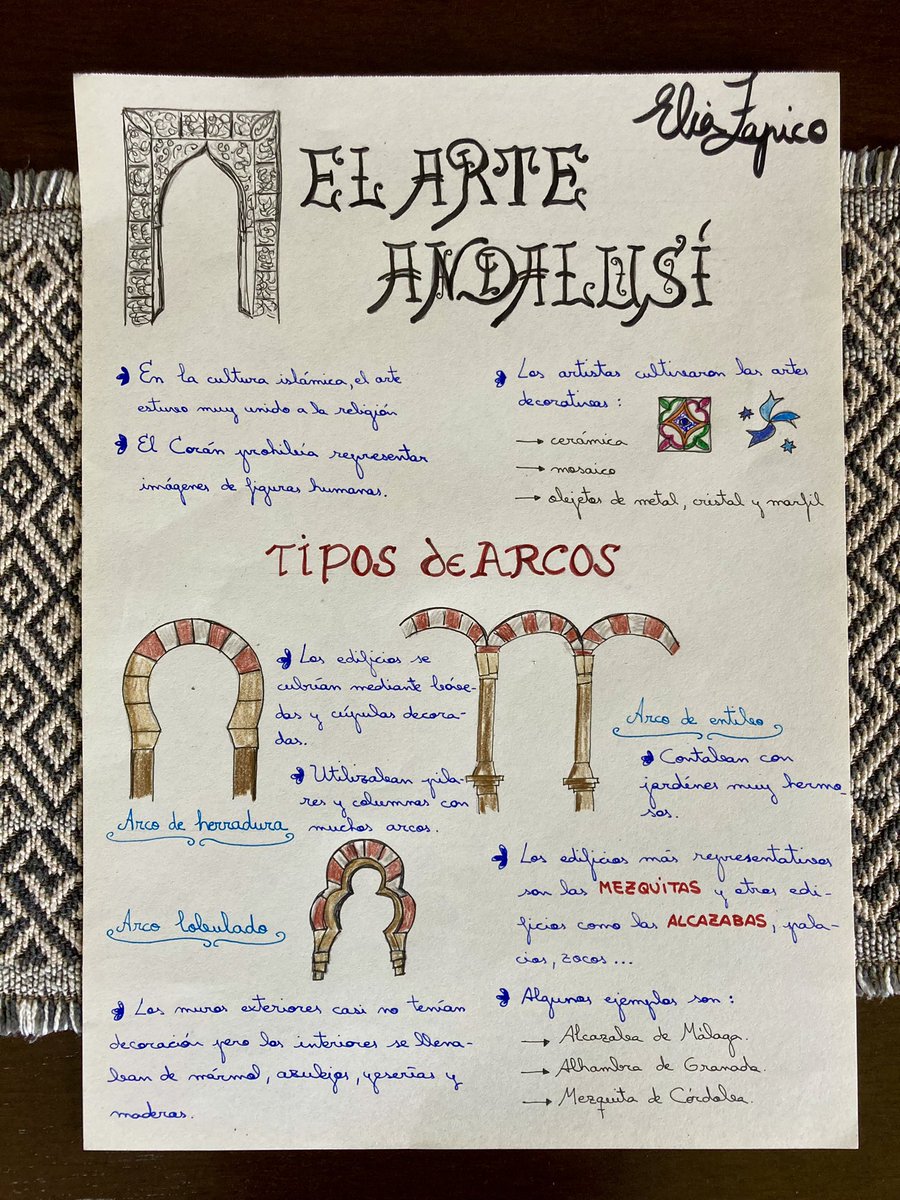 Elia Zapico
EL ARTE
ANDALUSÍ
En la cultura islámica, el arte
estuvo muy unido a la religión
El Corán prohibía representar
imágenes de figuras humanas.
Los artistas cultivaron las artes
decorativas:
→ cerámica
→ mosaico
→ objetos de metal, cristal y marfil
TIPOS de ARCOS
Los edificios se
cubrían mediante bóve-
das y cúpulas decora-
das.
Utilizaban pila-
res y columnas con
muchos arcos.
Arco de herradura
Arco de entibo
Contaban con
jardínes muy hermo-
sos.
Arco lobulado
Los edificios más representativos
son las MEZQUITAS y otros edi-
ficios como las ALCAZABAS, pala-
cios, zocos ...
Los muros exteriores casi no tenían
decoración pero los interiores se llena-
ban de mármol, azulejos, yeserías y
maderas.
Algunos ejemplos son:
→ Alcazaba de Málaga.
→ Alhambra de Granada.
→ Mezquita de Córdoba.